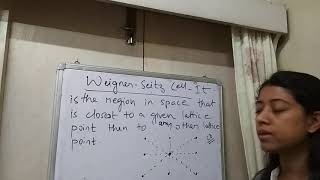 Weigner-Seitz Cell - It
is the region in space that
is closest to a given lattice
point than to any other lattice
point